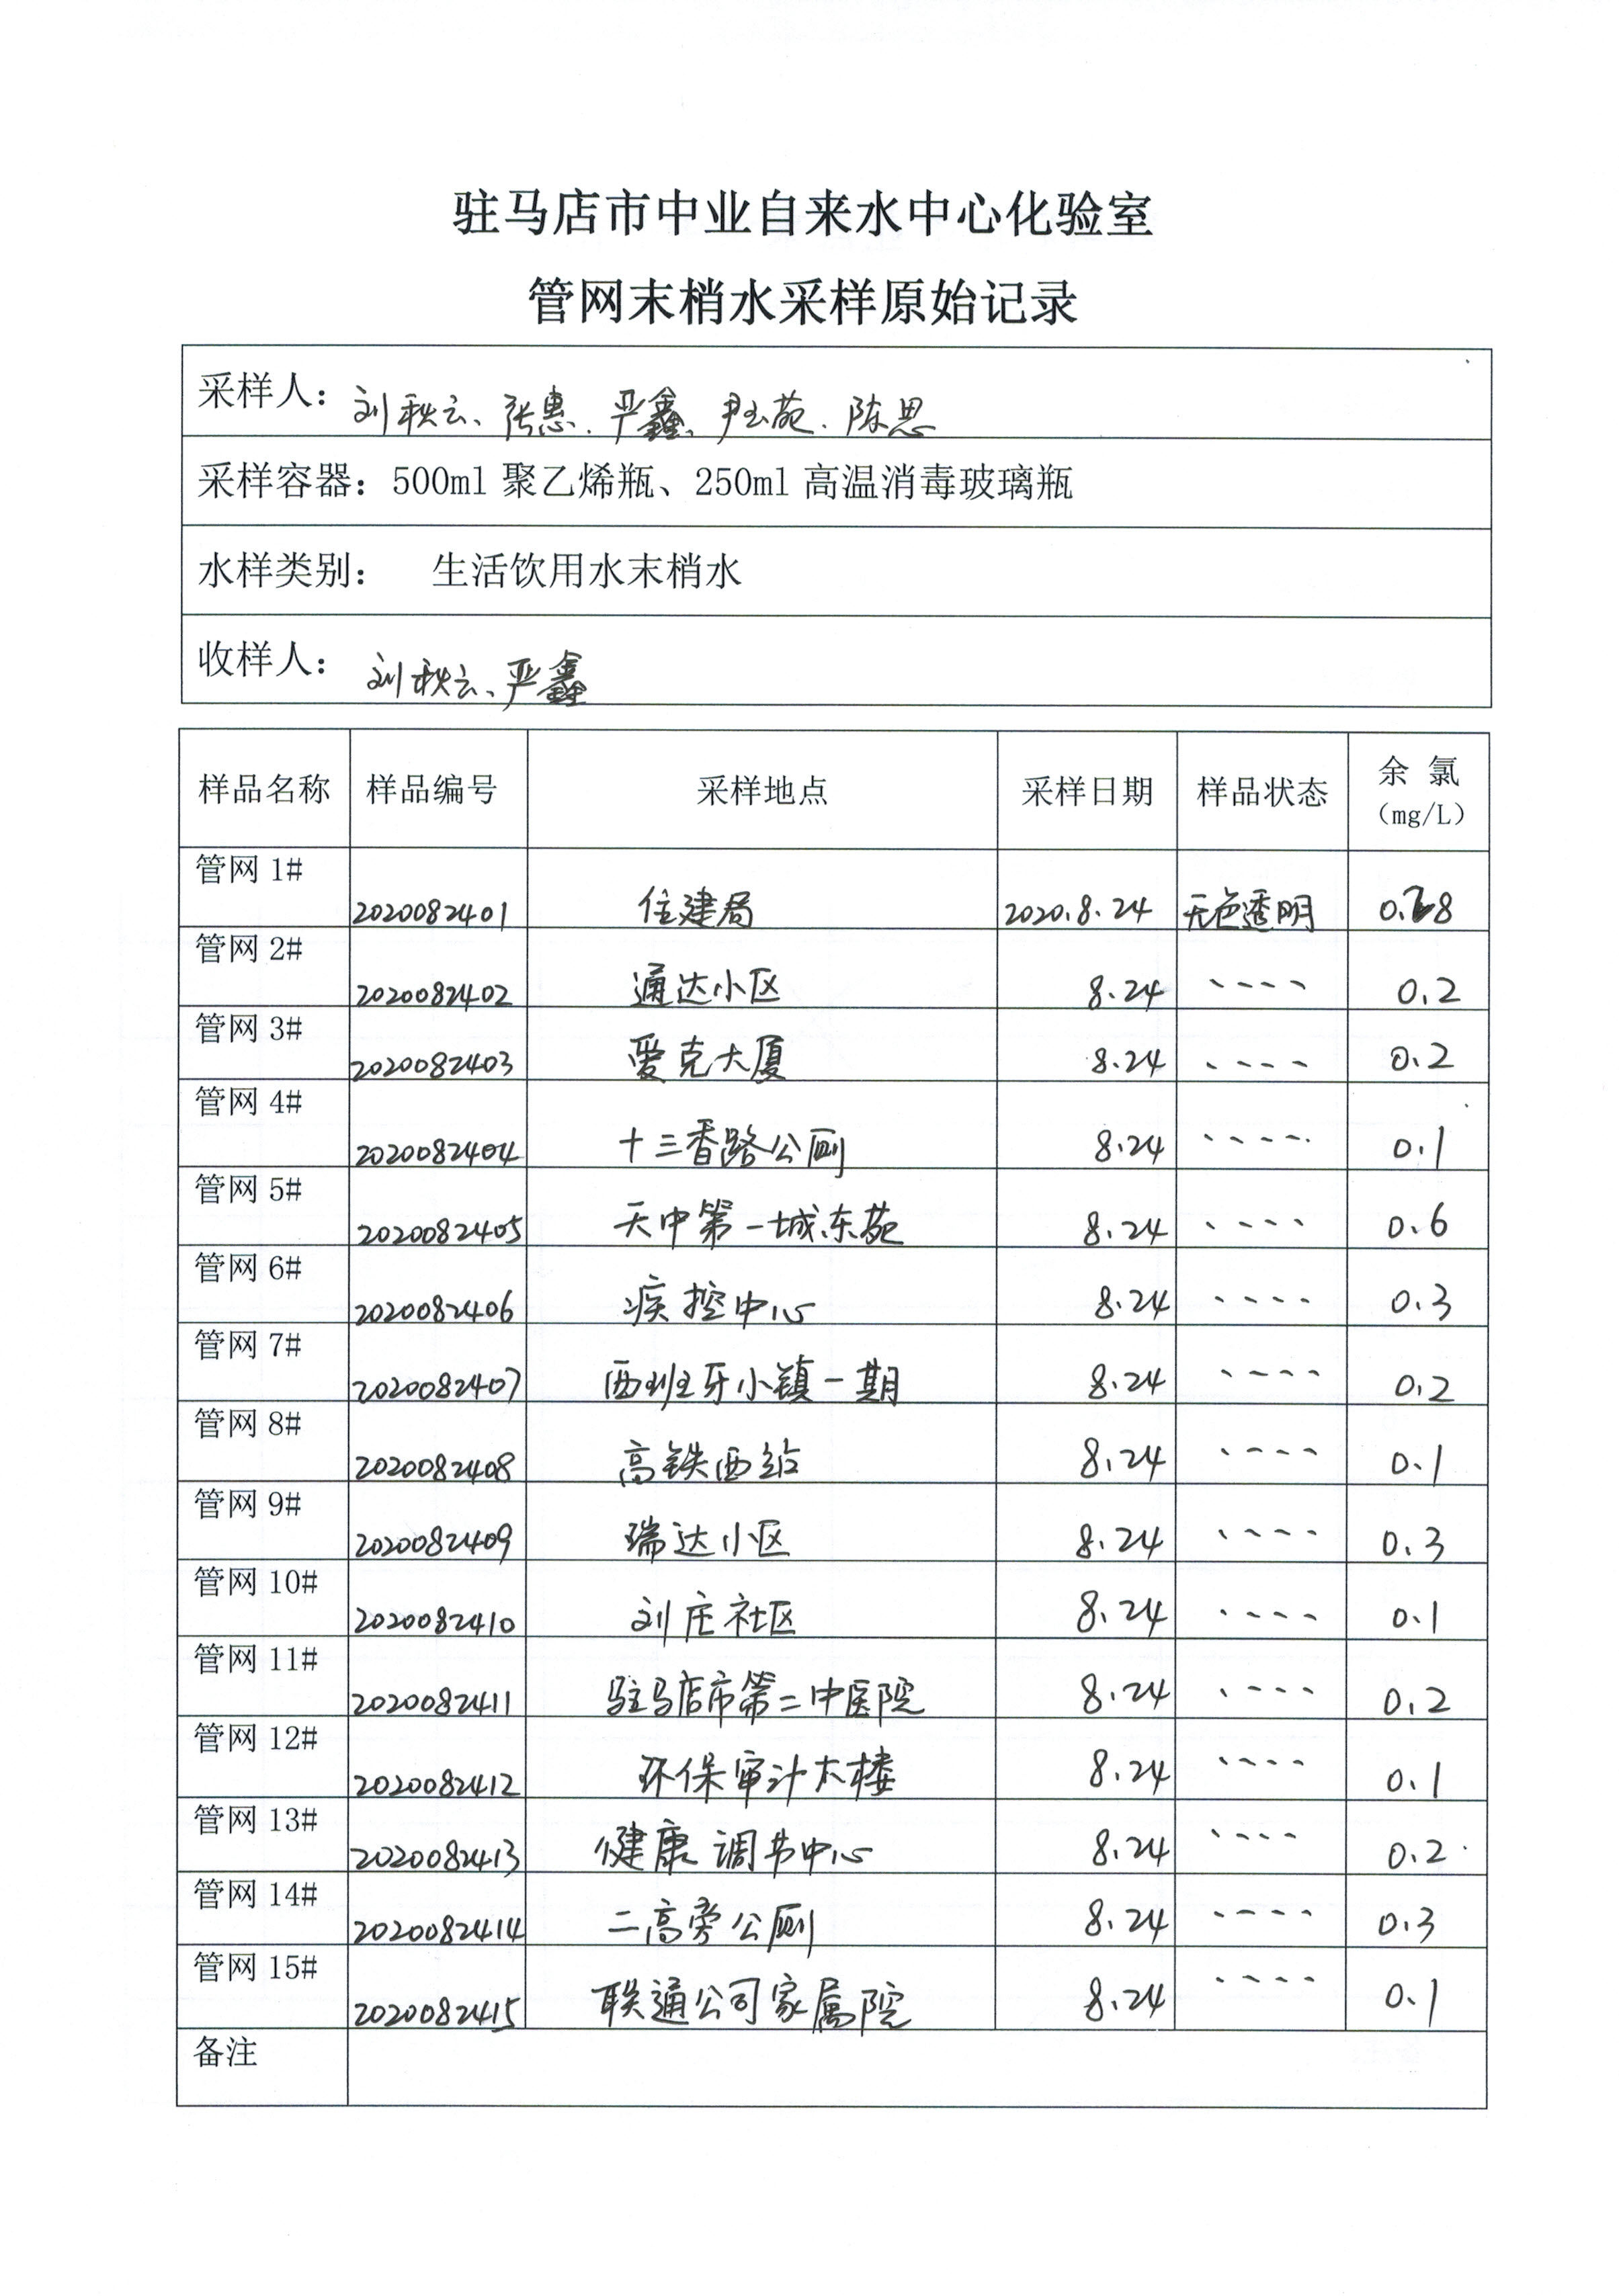 驻马店市中业自来水中心化验室
管网末梢水采样原始记录
采样人：刘秋云、张惠、严鑫、尹玉苑、陈思
采样容器：500ml 聚乙烯瓶、250ml 高温消毒玻璃瓶
水样类别： 生活饮用水末梢水
收样人：刘秋云、严鑫
样品名称 样品编号 采样地点 采样日期 样品状态 余氯（mg/L）
管网 1# 2020082401 住建局 2020.8.24 无色透明
管网 2# 2020082402 通达小区 8.24 、、、、 0.2
管网 3# 2020082403 爱克大厦 8.24 、、、、 0.2
管网 4# 2020082404 十三香路公厕 8.24 、、、、 0.1
管网 5# 2020082405 天中第一城东苑 8.24 、、、、 0.6
管网 6# 2020082406 疾控中心 8.24 、、、、 0.3
管网 7# 2020082407 西班牙小镇一期 8.24 、、、、 0.2
管网 8# 2020082408 高铁西站 8.24 、、、、 0.1
管网 9# 2020082409 瑞达小区 8.24 、、、、 0.3
管网 10# 2020082410 刘庄社区 8.24 、、、、 0.1
管网 11# 2020082411 驻马店市第二中医院 8.24 、、、、 0.2
管网 12# 2020082412 环保审计大楼 8.24 、、、、 0.1
管网 13# 2020082413 健康调节中心 8.24 、、、、 0.2
管网 14# 2020082414 二高旁公厕 8.24 、、、、 0.3
管网 15# 2020082415 联通公司家属院 8.24 、、、、 0.1
备注